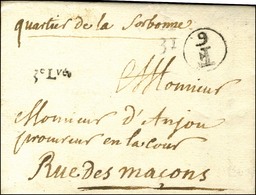 quartier de la Sorbonne
31
9
H
3e Lvée
Monsieur
Monsieur d'Anjou
procureur en la Cour
Rue des maçons